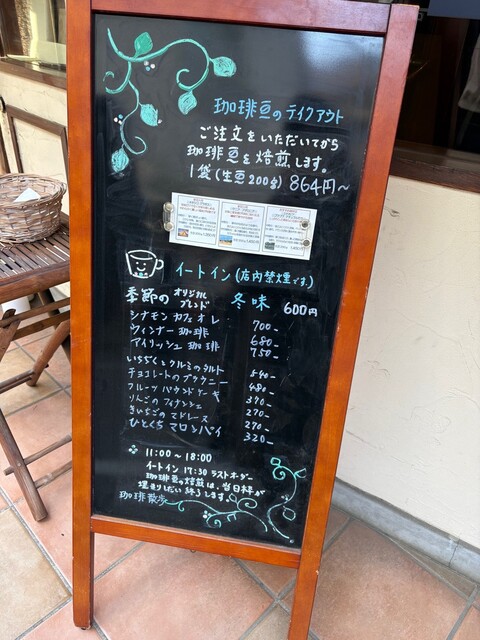 珈琲豆のテイクアウト
ご注文をいただいてから
珈琲豆を焙煎します。
1袋(生豆200g) 864円~
イートイン(店内禁煙です。)
季節の オリジナル ブレンド 冬味 600円
シナモン カフェ オレ 700-
ウィンナー 珈琲 680-
アイリッシュ 珈琲 750-
いちぢくとクルミのタルト 540-
チョコレートのブラウニー 480-
フルーツ パウンドケーキ 370-
りんごの フィナンシェ 270-
きいちごの マドレーヌ 270-
ひとくち マロンパイ 320-
11:00~18:00
イートイン 17:30 ラストオーダー
珈琲豆の焙煎は、当日枠が
埋まりしだい終了します。
珈琲 散歩